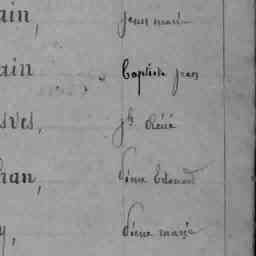 ain, jean marie
ain Baptiste jean
sves, jh. René
han, Pierre Edouard
y, Pierre marie